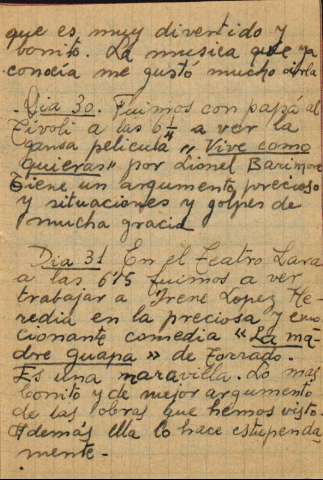 que es muy divertido y
bonito. La musica que ya
conocía me gustó mucho oirla
. Dia 30. Fuimos con papá al
Tívoli a las 6 1/4 a ver la
gansa pelicula "Vive como
quieras" por Lionel Barimore
Tiene un argumento precioso
y situaciones y golpes de
mucha gracia
Dia 31 En el Teatro Lara
a las 6'15 fuimos a ver
trabajar a Irene Lopez He-
redia en la preciosa y emo
cionante comedia "La ma-
dre guapa" de Torrado.
Es una maravilla. Lo mas
bonito y de mejor argumento
de las obras que hemos visto.
Además ella lo hace estupenda-
mente.-